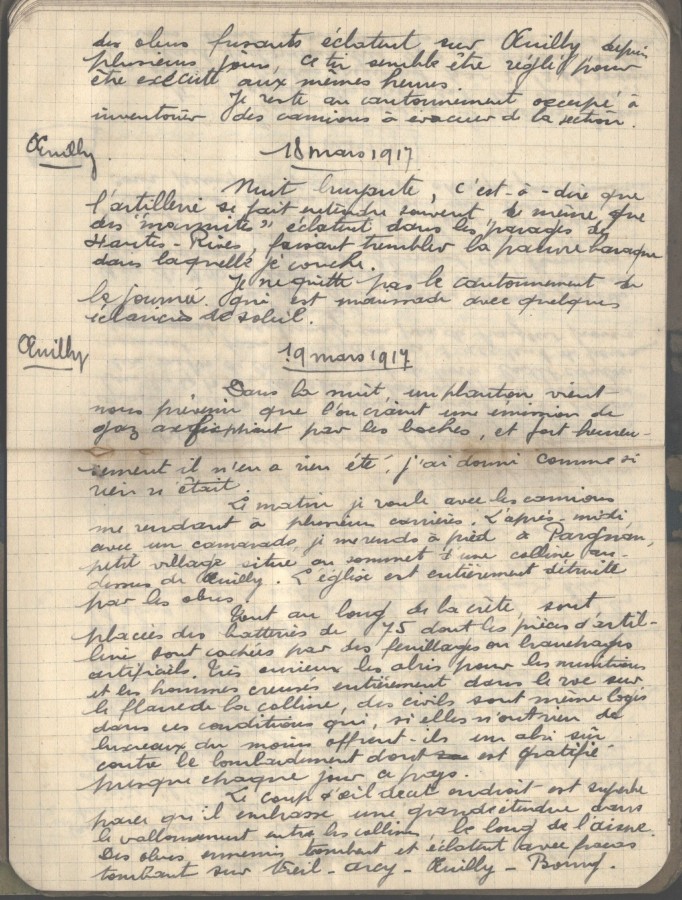 des obus fusants éclatent sur Œuilly depuis
plusieurs jours, ce tir semble être réglé pour
être exécuté aux mêmes heures.
Je reste au cantonnement occupé à
inventorier des camions à évacuer de la section.
Œuilly. 18 mars 1917
Nuit bruyante, c'est-à-dire que
l'artillerie se fait entendre souvent, de même que
des "marmites" éclatent dans les parages des
Hautes-Rives, faisant trembler la pauvre baraque
dans laquelle je couche.
Je ne quitte pas le cantonnement de
la journée qui est maussade avec quelques
éclaircies de soleil.
Œuilly 19 mars 1917
Dans la nuit, un planton vient
nous prévenir que l'on craint une émission de
gaz axfisphiant par les boches, et fort heureu-
sement il n'en a rien été, j'ai dormi comme si
rien n'était.
Le matin je roule avec les camions
me rendant à plusieurs carrières. L'après-midi
avec un camarade, je me rends à pied à Pargnan,
petit village situé au sommet d'une colline au-
dessus de Œuilly. L'église est entièrement détruite
par les obus.
Tout au long de la crète, sont
placées des batteries de 75 dont les pièces d'artil-
lerie sont cachées par des feuillages ou branchages
artificiels. Très curieux les abris pour les munitions
et les hommes creusés entièrement dans le roc sur
le flanc de la colline, des civils sont même logés
dans ces conditions qui, si elles n'ont rien de
luxueux du moins offrent-ils un abri sûr
contre le bombardement dont est gratifié
presque chaque jour ce pays.
Le coup d'œil de cet endroit est superbe
parce qu'il embrasse une grande étendue dans
le vallonnement entre les collines, le long de l'aisne.
Des obus ennemis tombent et éclatent avec fracas
tombant sur Vieil-arcy - Œuilly - Bourg.